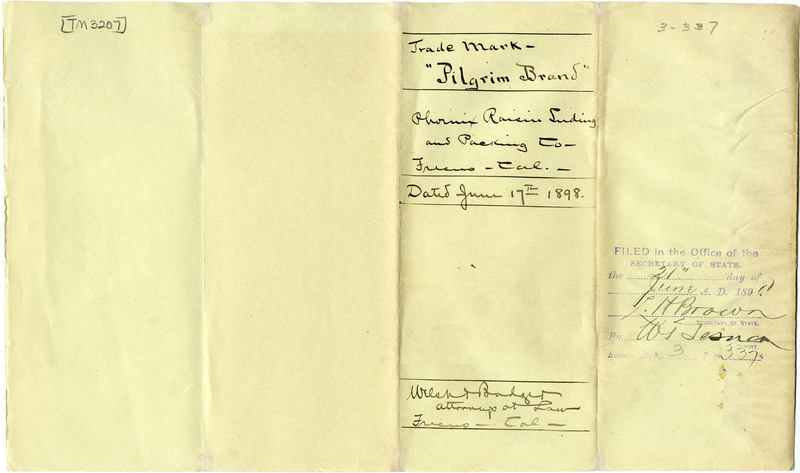 [TM3207]
Trade Mark —
"Pilgrim Brand"
Phoenix Raisin Seeding
and Packing Co —
Fresno — Cal. —
Dated June 17th 1898.
Attorneys at Law
Fresno — Cal —
3-337
FILED in the Office of the
SECRETARY OF STATE,
the 21" day of
June A. D. 1898
L. H. Brown
SECRETARY OF STATE.
By
3 Page 337